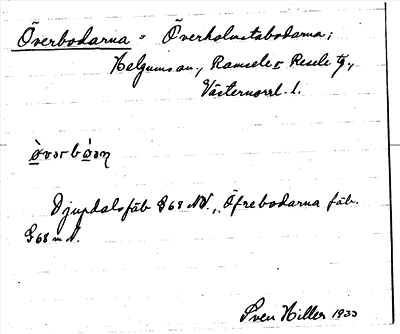 Överbodarna = Överholmstabodarna;
Helgums sn., Ramsele o Resele tg.,
Västernorrl. l.
òvərbòən
Djupdalsfäb G68 NV., Öfrebodarna fäb.
G68 m N.
Sven Hiller 1933